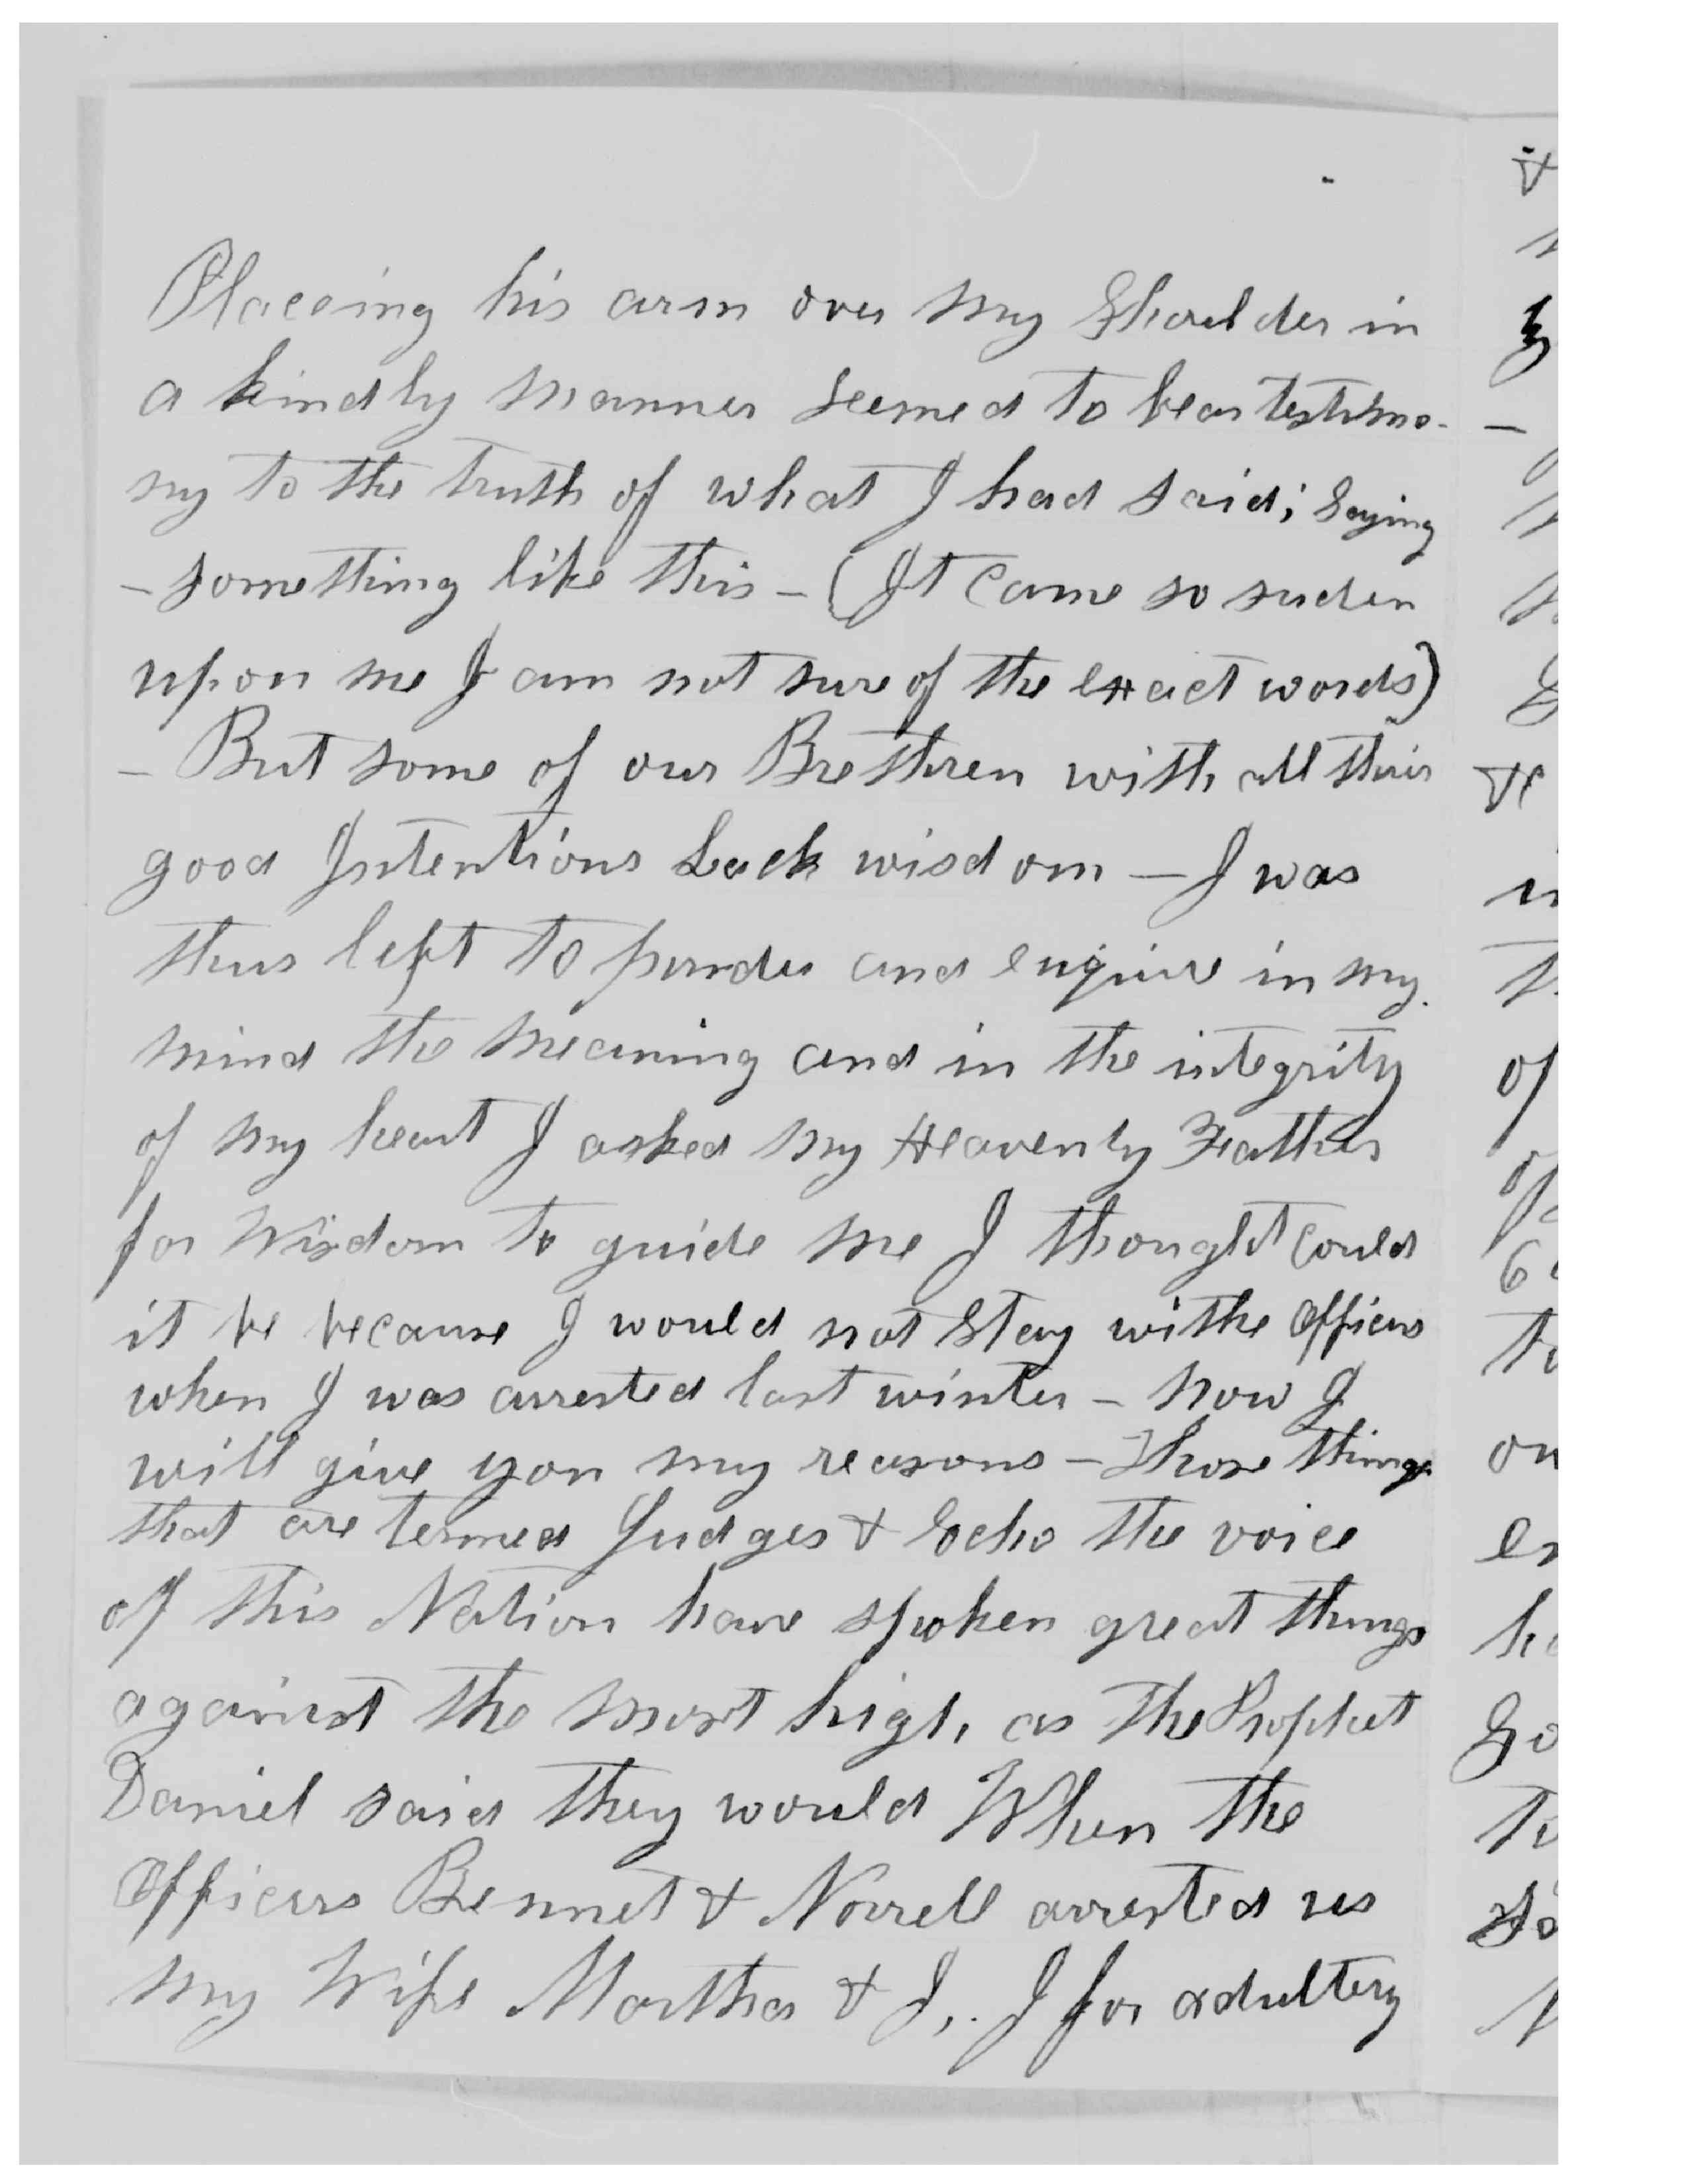 Placeing his arm over my Shoulder in
a kindly manner seemed to bear testimo-
ny to the truth of what I had said; Saying
- something like this - (It Came so suden
upon me I am not sure of the exact words)
- But some of our Brethren with all their
good Intentions Lack wisdom - I was
thus left to ponder and enquire in my
mind the meaning and in the integrity
of my heart I asked my Heavenly Father
for Wisdom to guide me I thought Could
it be because I would not Stay withe Officers
when I was arrested last winter - now I
will give you my reasons - Those things
that are termed Judges & Echo the voice
of this Nation have spoken great things
against the most high, as the Prophet
Daniel said they would When the
Officers Bennet & Norrell arrested us
my Wife Martha & I,. I for adultery